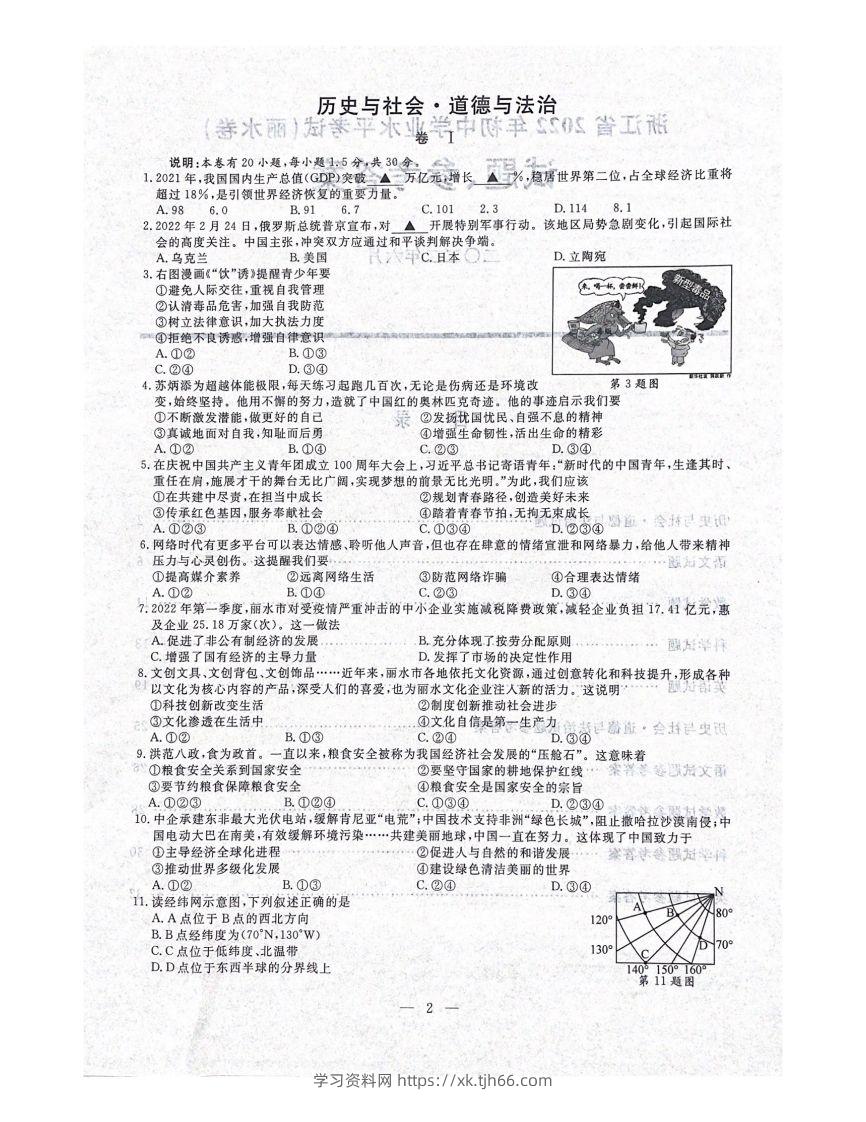 历史与社会·道德与法治
卷 I
说明:本卷有 20 小题,每小题 1.5 分,共 30 分。
1. 2021 年,我国国内生产总值(GDP)突破 ▲ 万亿元,增长 ▲ %,稳居世界第二位,占全球经济比重将
超过 18%,是引领世界经济恢复的重要力量。
A. 98 6.0 B. 91 6.7 C. 101 2.3 D. 114 8.1
2. 2022 年 2 月 24 日,俄罗斯总统普京宣布,对 ▲ 开展特别军事行动。该地区局势急剧变化,引起国际社
会的高度关注。中国主张,冲突双方应通过和平谈判解决争端。
A. 乌克兰 B. 美国 C. 日本 D. 立陶宛
3. 右图漫画《“饮”诱》提醒青少年要
①避免人际交往,重视自我管理
②认清毒品危害,加强自我防范
③树立法律意识,加大执法力度
④拒绝不良诱惑,增强自律意识
A. ①② B. ①③
C. ②④ D. ③④
来,喝一杯,尝尝鲜!
新型毒品
第 3 题图
4. 苏炳添为超越体能极限,每天练习起跑几百次,无论是伤病还是环境改
变,始终坚持。他用不懈的努力,造就了中国红的奥林匹克奇迹。他的事迹启示我们要
①不断激发潜能,做更好的自己 ②发扬忧国忧民、自强不息的精神
③真诚地面对自我,知耻而后勇 ④增强生命韧性,活出生命的精彩
A. ①② B. ①④ C. ②③ D. ③④
5. 在庆祝中国共产主义青年团成立 100 周年大会上,习近平总书记寄语青年:“新时代的中国青年,生逢其时、
重任在肩,施展才干的舞台无比广阔,实现梦想的前景无比光明。”为此,我们应该
①在共建中尽责,在担当中成长 ②规划青春路径,创造美好未来
③传承红色基因,服务奉献社会 ④踏着青春节拍,无拘无束成长
A. ①②③ B. ①②④ C. ①③④ D. ②③④
6. 网络时代有更多平台可以表达情感、聆听他人声音,但也存在肆意的情绪宣泄和网络暴力,给他人带来精神
压力与心灵创伤。这提醒我们要
①提高媒介素养 ②远离网络生活 ③防范网络诈骗 ④合理表达情绪
A. ①② B. ①④ C. ②③ D. ③④
7. 2022 年第一季度,丽水市对受疫情严重冲击的中小企业实施减税降费政策,减轻企业负担 17.41 亿元,惠
及企业 25.18 万家(次)。这一做法
A. 促进了非公有制经济的发展 B. 充分体现了按劳分配原则
C. 增强了国有经济的主导力量 D. 发挥了市场的决定性作用
8. 文创文具、文创背包、文创饰品……近年来,丽水市各地依托文化资源,通过创意转化和科技提升,形成各种
以文化为核心内容的产品,深受人们的喜爱,也为丽水文化企业注入新的活力。这说明
①科技创新改变生活 ②制度创新推动社会进步
③文化渗透在生活中 ④文化自信是第一生产力
A. ①② B. ①③ C. ②④ D. ③④
9. 洪范八政,食为政首。一直以来,粮食安全被称为我国经济社会发展的“压舱石”。这意味着
①粮食安全关系到国家安全 ②要坚守国家的耕地保护红线
③要节约粮食保障粮食安全 ④粮食安全是国家安全的宗旨
A. ①②③ B. ①②④ C. ①③④ D. ②③④
10. 中企承建东非最大光伏电站,缓解肯尼亚“电荒”;中国技术支持非洲“绿色长城”,阻止撒哈拉沙漠南侵;中
国电动大巴在南美,有效缓解环境污染……共建美丽地球,中国一直在努力。这体现了中国致力于
①主导经济全球化进程 ②促进人与自然的和谐发展
③推动世界多级化发展 ④建设绿色清洁美丽的世界
A. ①② B. ①③ C. ②④ D. ③④
11. 读经纬网示意图,下列叙述正确的是
A. A 点位于 B 点的西北方向
B. B 点经纬度为(70°N,130°W)
C. C 点位于低纬度、北温带
D. D 点位于东西半球的分界线上
N
A B 80°
120°
D 70°
130° C
140° 150° 160°
第 11 题图
— 2 —
学习资料网 https://xk.tjh66.com